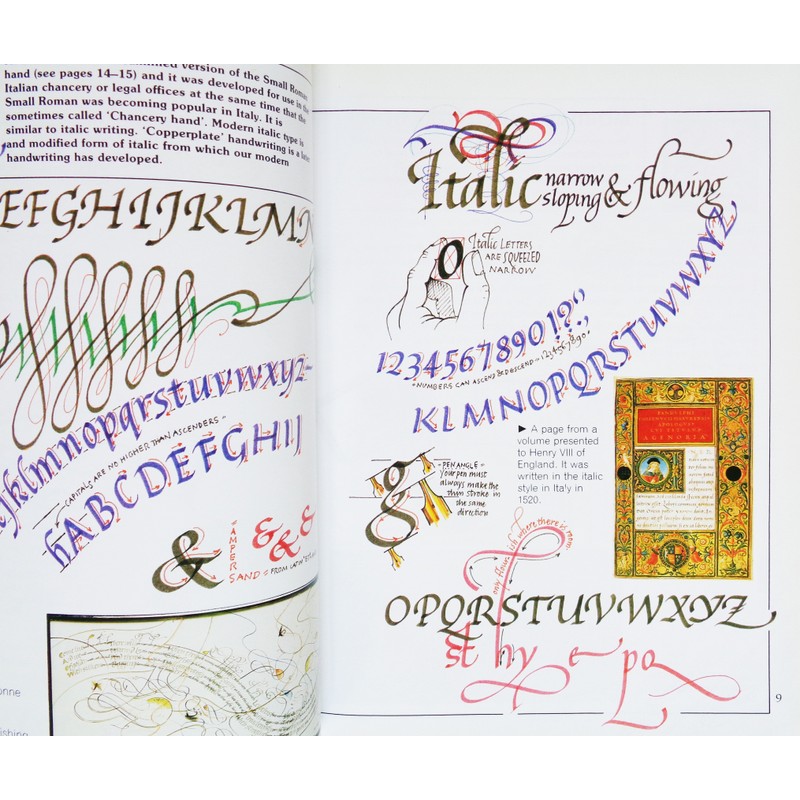 version of the Small Roman
hand (see pages 14–15) and it was developed for use in the
Italian chancery or legal offices at the same time that the
Small Roman was becoming popular in Italy. It is
sometimes called 'Chancery hand'. Modern italic type is
similar to italic writing. 'Copperplate' handwriting is a
and modified form of italic from which our modern
handwriting has developed.
EFGHIJKLMN
jklmnopqrstuvwxyz
CAPITALS ARE NO HIGHER THAN ASCENDERS
hABCDEFGHIJ
&
AMPERSAND = FROM LATIN
& & &
onne
ishing
Italic narrow sloping & flowing
Italic LETTERS
ARE SQUEEZED
NARROW
1234567890!?",;
NUMBERS CAN ASCEND & DESCEND = 1234567890
KLMNOPQRSTUVWXYZ
► A page from a
volume presented
to Henry VIII of
England. It was
written in the italic
style in Italy in
1520.
PEN ANGLE =
your pen must
always make the
thin stroke in
the same
direction
g
only flourish where there is room
OPQRSTUVWXYZ
st hy e po
9